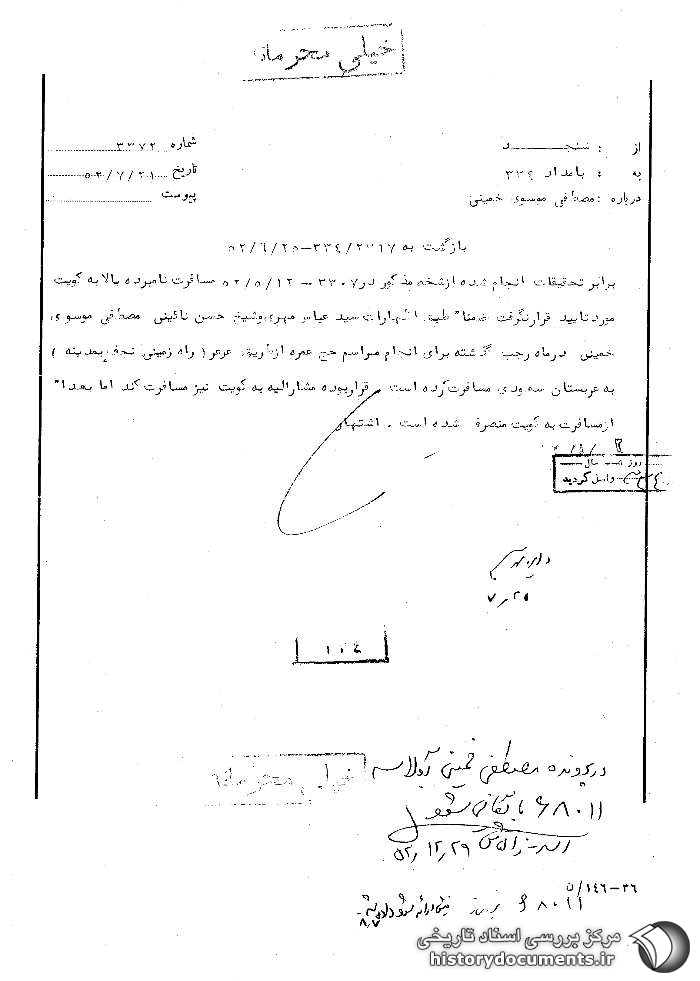 خیلی محرمانه
از : سنجد
شماره ۳۳۷۲
به : بامداد ۳۳۴
تاریخ ۵۲/۷/۲۱
درباره : مصطفی موسوی خمینی
پیوست
بازگشت به ۳۳٤/۲۳۱۷-۵۲/٦/۲۵
برابر تحقیقات انجام شده از شخص مذکور در ۳۳۰۷ - ۵۲/۵/۱۲ مسافرت نامبرده بالا به کویت
مورد تایید قرار نگرفت ضمنا" طبق اظهارات سید عباس مهری و شیخ حسن نائینی مصطفی موسوی
خمینی در ماه رجب گذشته برای انجام مراسم حج عمره از طریق عرعر ( راه زمینی نجف بمدینه )
به عربستان سعودی مسافرت کرده است قرار بوده مشارالیه به کویت نیز مسافرت کند اما بعدا"
از مسافرت به کویت منصرف شده است . اشتهار
روز سال
واصل گردید
۷٫۲۵
۱۰٤
در پرونده مصطفی خمینی کلاسه
۶۸۰۱۱ بایگانی شود
۵۲٫۱۲٫۲۹
خیلی محرمانه
۱٤٦-۳٦
۶۸۰۱۱
مرکز بررسی اسناد تاریخی
historydocuments.ir